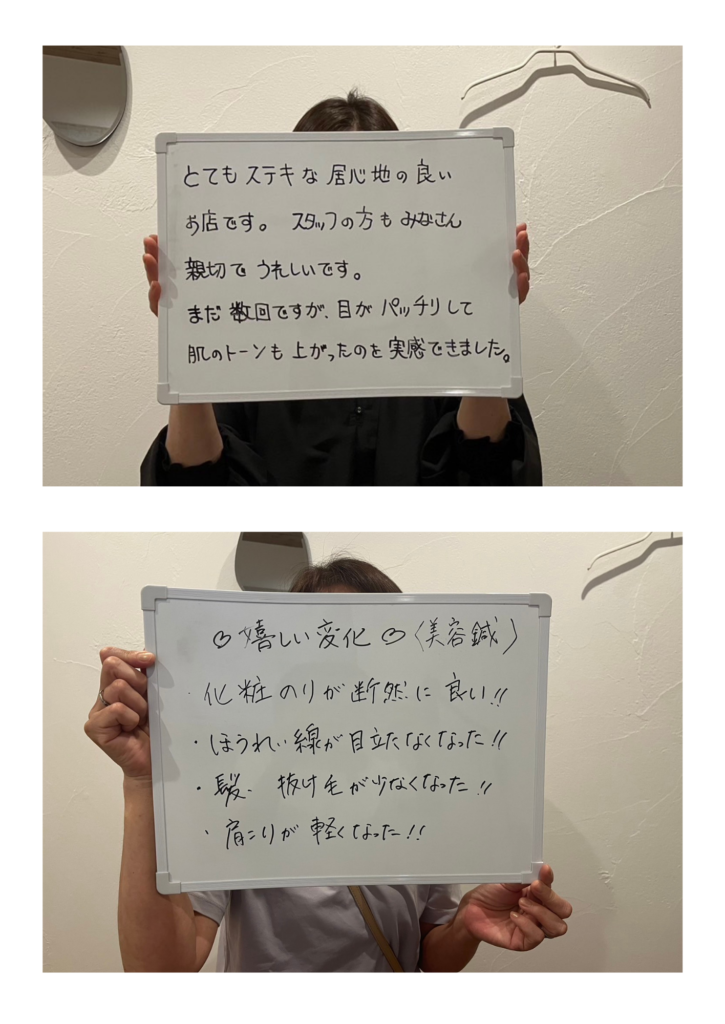 とてもステキな居心地の良い
お店です。 スタッフの方もみなさん
親切でうれしいです。
まだ数回ですが、目がパッチリして
肌のトーンも上がったのを実感できました。
♡嬉しい変化♡〈美容鍼〉
・化粧のりが断然に良い!!
・ほうれい線が目立たなくなった!!
・髪、抜け毛が少なくなった!!
・肩こりが軽くなった!!